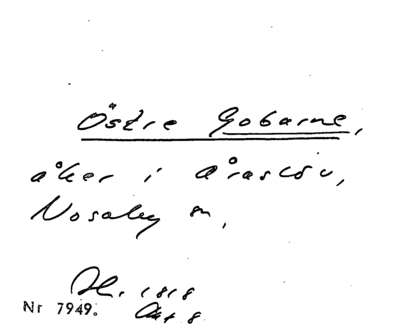 Östre Gobarne,
åker i Åraslöv,
Nosaby sn,
Sk. 1818
Akt 8
Nr 7949.